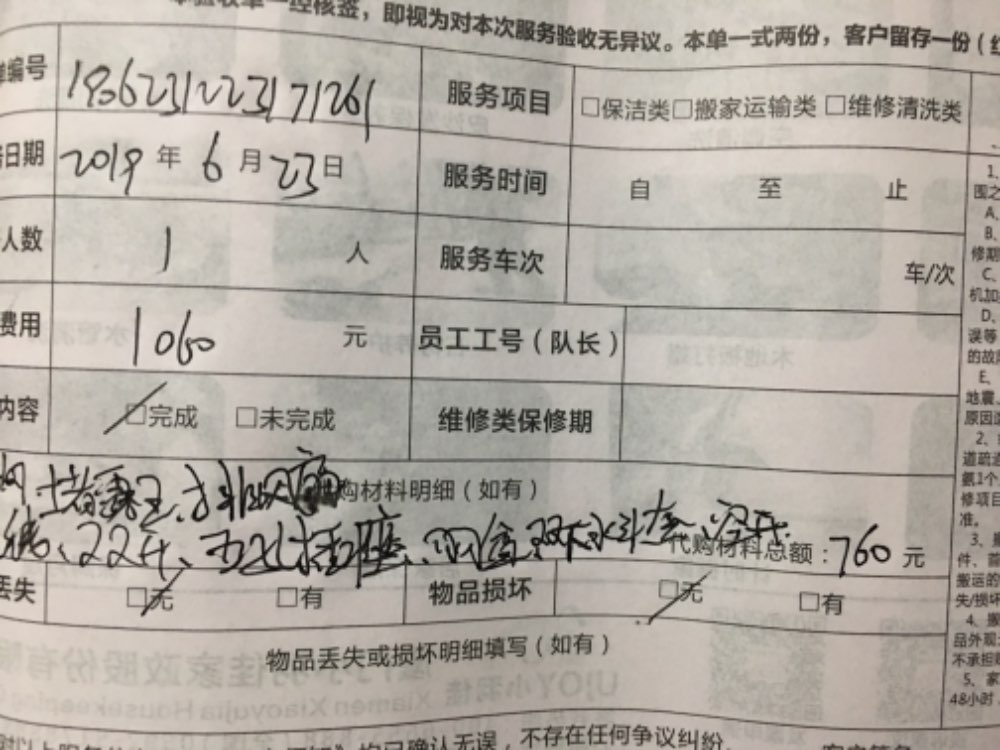 本验收单一经核签，即视为对本次服务验收无异议。本单一式两份，客户留存一份（红
编号 1906231223171261 服务项目 □保洁类□搬家运输类 □维修清洗类
日期 2019 年 6 月 23 日 服务时间 自 至 止
人数 1 人 服务车次 车/次
费用 1060 元 员工工号（队长）
内容 □完成 □未完成 维修类保修期
购材料明细（如有）
22卡、五孔插座、
代购材料总额：760 元
丢失 □无 □有 物品损坏 □无 □有
物品丢失或损坏明细填写（如有）
1、
围之
A、
B、
修期
C、
机加
D、
误等
的故
E、
地震、
原因
2、
道疏
氨1个
修项目
准。
3、搬
件、
搬运的
失/损坏
4、搬
品外观
不承担
5、家
48小时
对以上服务 均已确认无误，不存在任何争议纠纷。